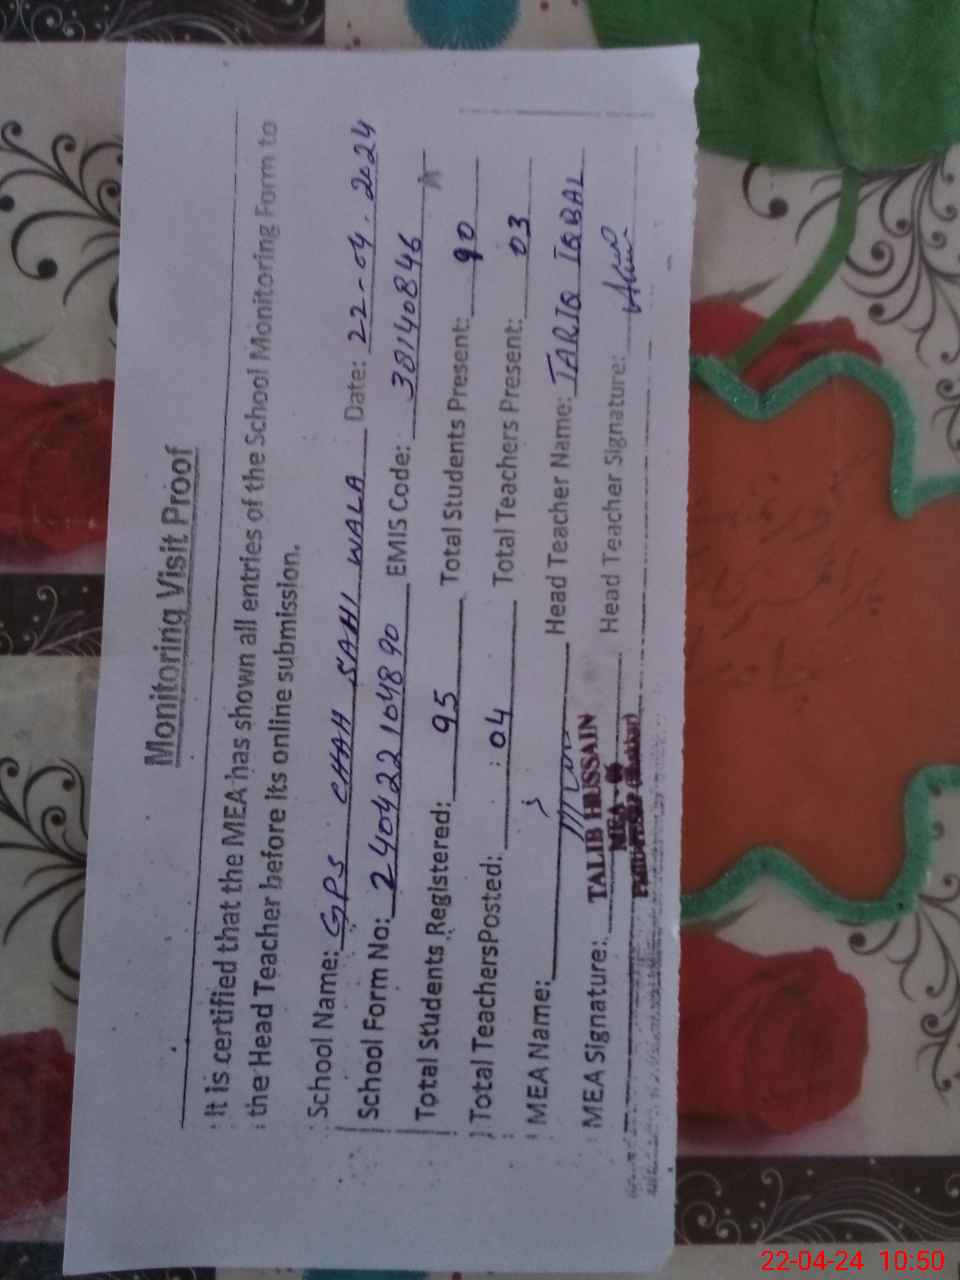 Monitoring Visit Proof
It is certified that the MEA has shown all entries of the School Monitoring Form to
the Head Teacher before its online submission.
School Name: GPS CHAH SAHI WALA Date: 22-04.2024
School Form No: 240422104890 EMIS Code: 38140846
Total Students Registered: 95 Total Students Present: 90
Total TeachersPosted: 04 Total Teachers Present: 03
MEA Name: Head Teacher Name: TARIQ IQBAL
MEA Signature: Head Teacher Signature:
TALIB HUSSAIN
22-04-24 10:50